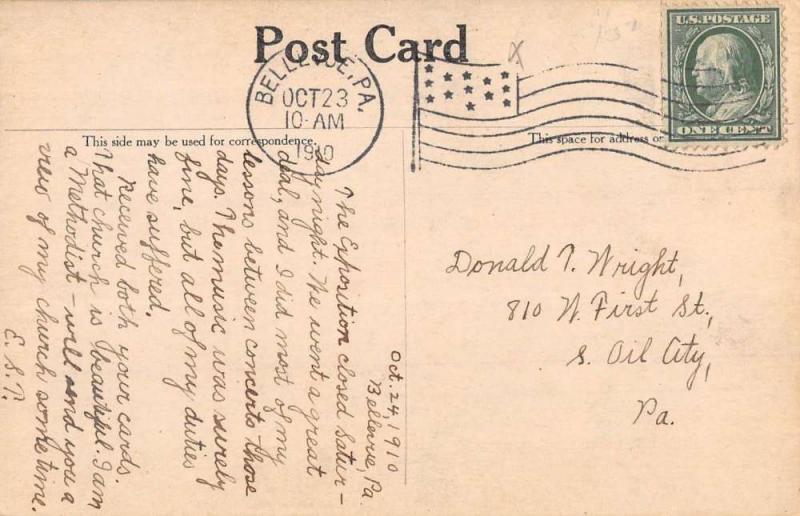 Post Card
BELLEVUE, PA.
OCT 23
10-AM
1910
U.S. POSTAGE
ONE CENT
This side may be used for correspondence.
This space for address on
Oct. 24, 1910
Bellevue, Pa.
The Exposition closed Satur-
day night. We went a great
deal, and I did most of my
lessons between concerts those
days. The music was surely
fine, but all of my duties
have suffered.
Received both your cards.
That church is beautiful. I am
a Methodist - will send you a
view of my church some time.
E. S. P.
Donald T. Wright,
810 W. First St.,
S. Oil City,
Pa.